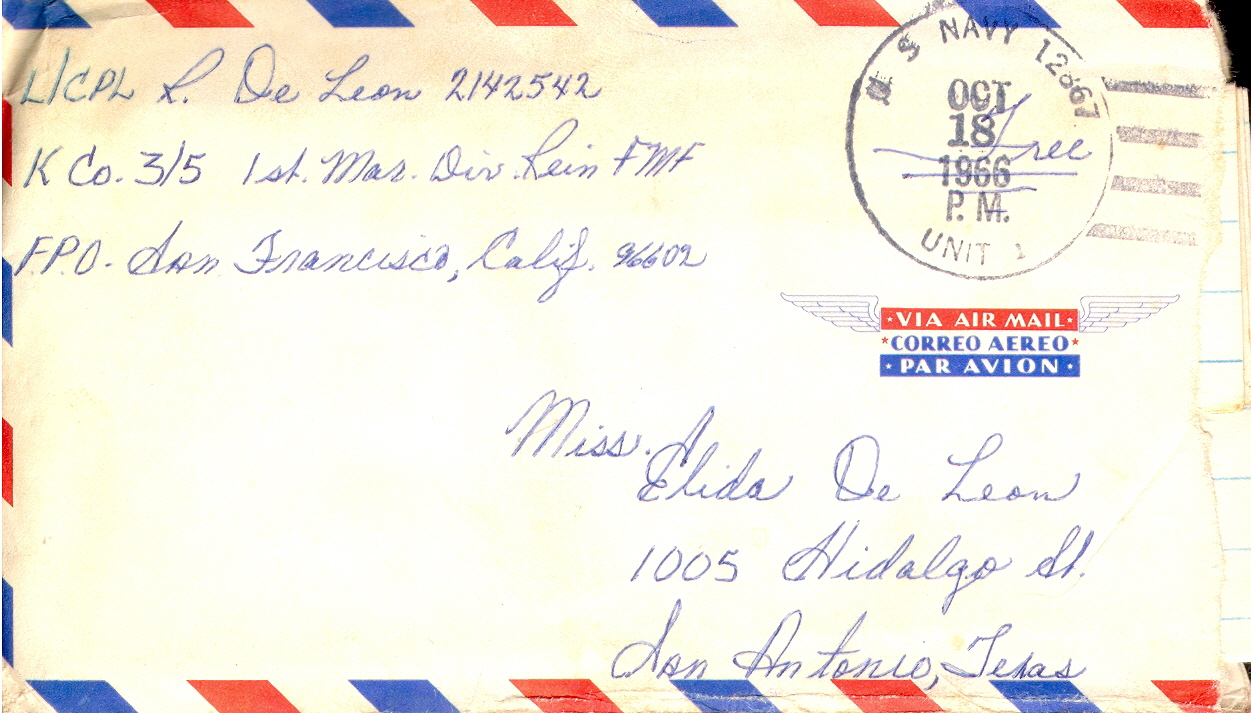 L/CPL R. De Leon 2142542
K Co. 3/5 1st. Mar. Div. Rein FMF
F.P.O. San Francisco, Calif. 96602
U S NAVY 12867
OCT
18
Free
1966
P. M.
UNIT 1
·VIA AIR MAIL·
*CORREO AEREO*
·PAR AVION·
Miss. Elida De Leon
1005 Hidalgo St.
San Antonio, Texas